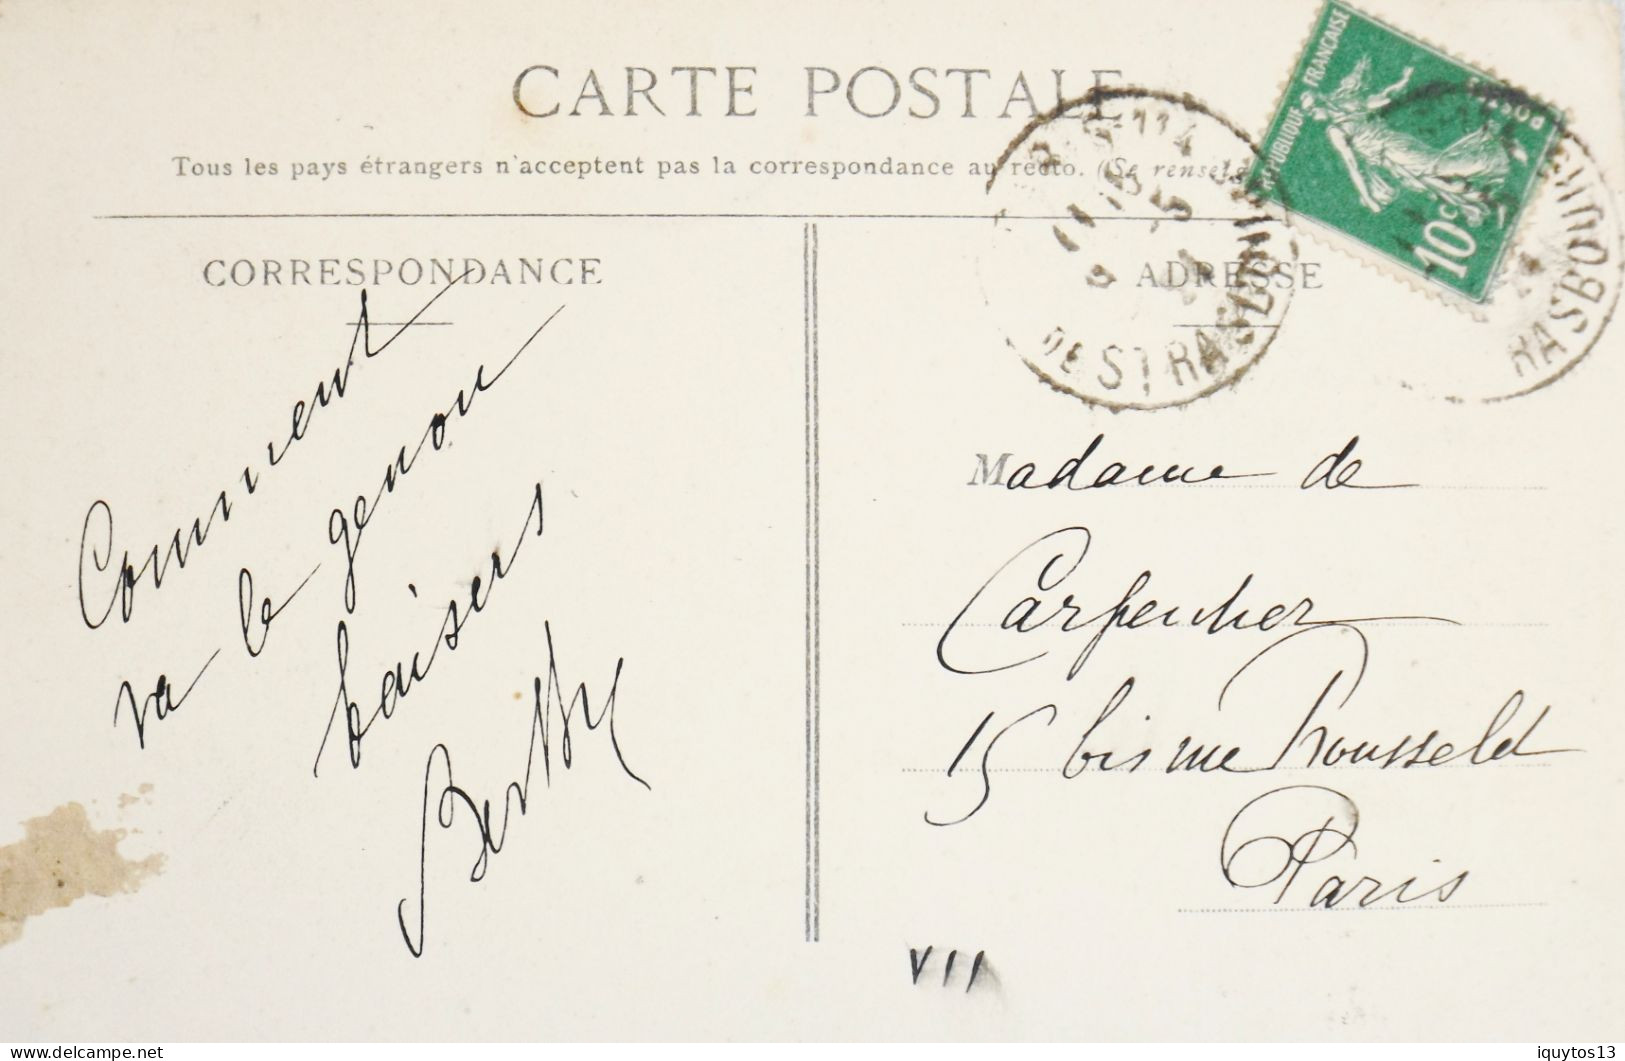 CARTE POSTALE
Tous les pays étrangers n'acceptent pas la correspondance au recto. (Se renseig
CORRESPONDANCE
ADRESSE
RÉPUBLIQUE FRANÇAISE
POSTES
10c
DE STRASBOURG
RASBOURG
Comment
va le genou
baisers
Berthy
Madame de
Carpentier
15 bis rue Rousselet
Paris
VII
Delcampe.net
iquytos13